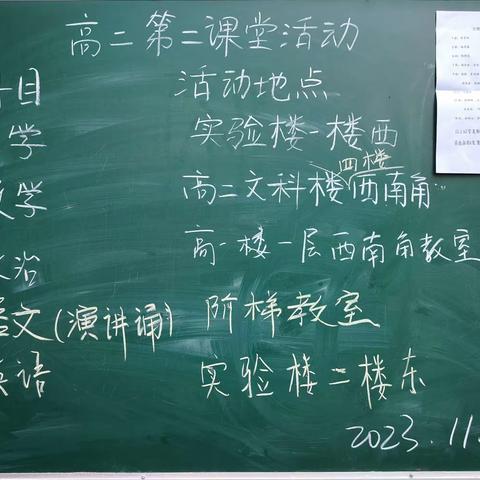 高二第二课堂活动
目 活动地点
学 实验楼一楼西
学 高二文科楼四楼西南角
治 高一楼一层西南角教室
语文(演讲诵) 阶梯教室
英语 实验楼二楼东
2023.11.